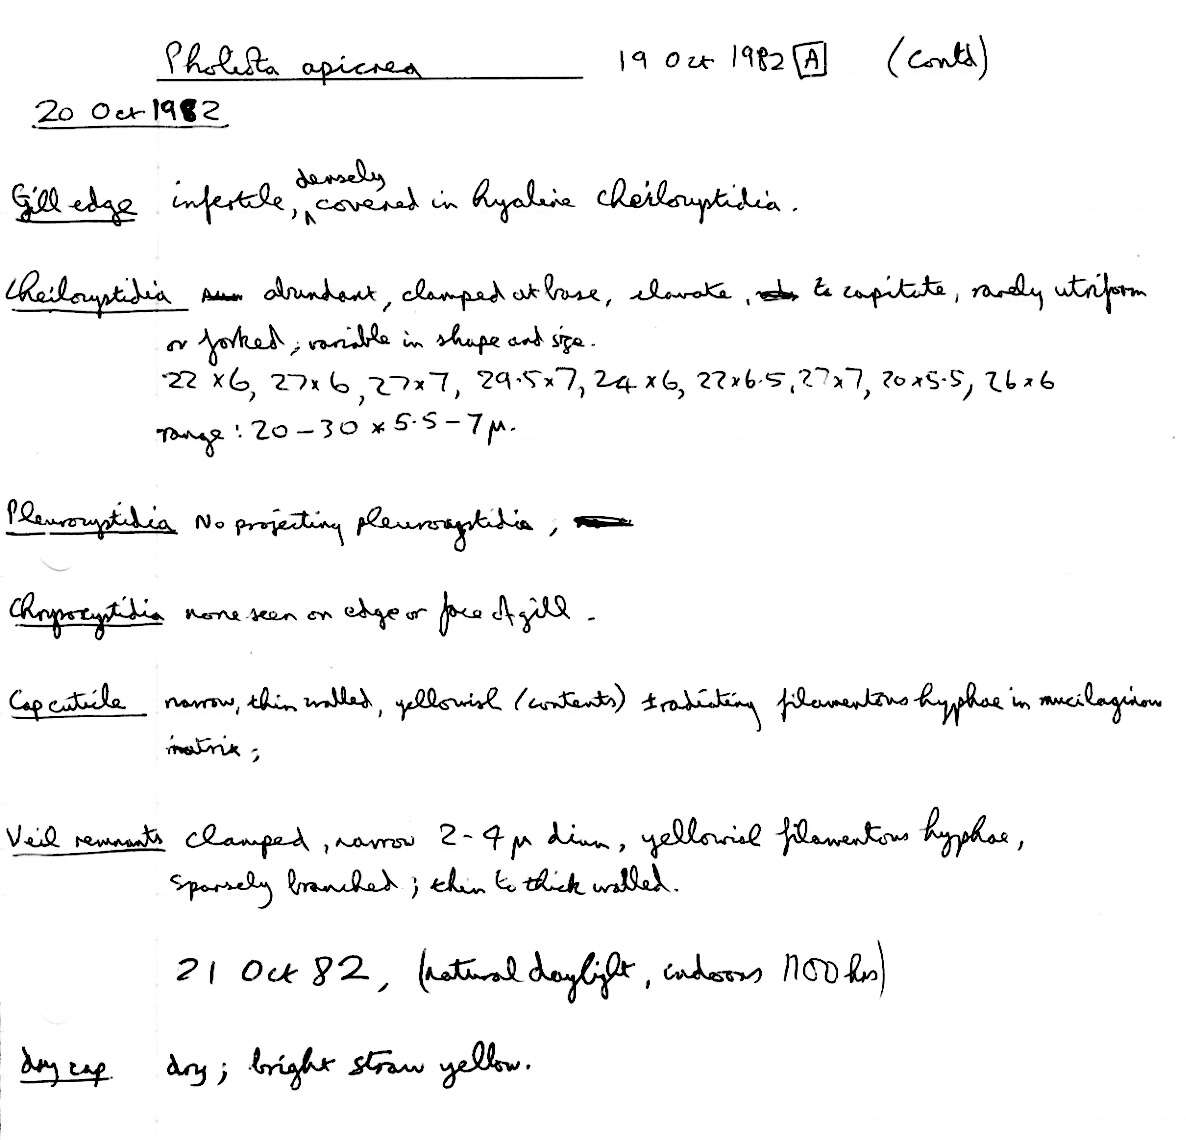 Pholiota apicrea 19 Oct 1982 [A] (Contd)
20 Oct 1982
Gill edge infertile, densely covered in hyaline cheilocystidia.
Cheilocystidia abundant, clamped at base, clavate, to capitate, rarely utriform
or forked; variable in shape and size.
22 x 6, 27 x 6, 27 x 7, 29.5 x 7, 24 x 6, 22 x 6.5, 27 x 7, 20 x 5.5, 26 x 6
range: 20 – 30 x 5.5 – 7 µ.
Pleurocystidia No projecting pleurocystidia;
Chrysocystidia none seen on edge or face of gill.
Cap cuticle narrow, thin walled, yellowish (contents) ± radiating filamentous hyphae in mucilaginous
matrix;
Veil remnants clamped, narrow 2-4 µ diam, yellowish filamentous hyphae,
sparsely branched; thin to thick walled.
21 Oct 82, (natural daylight, indoors 1100 hrs)
dry cap dry; bright straw yellow.